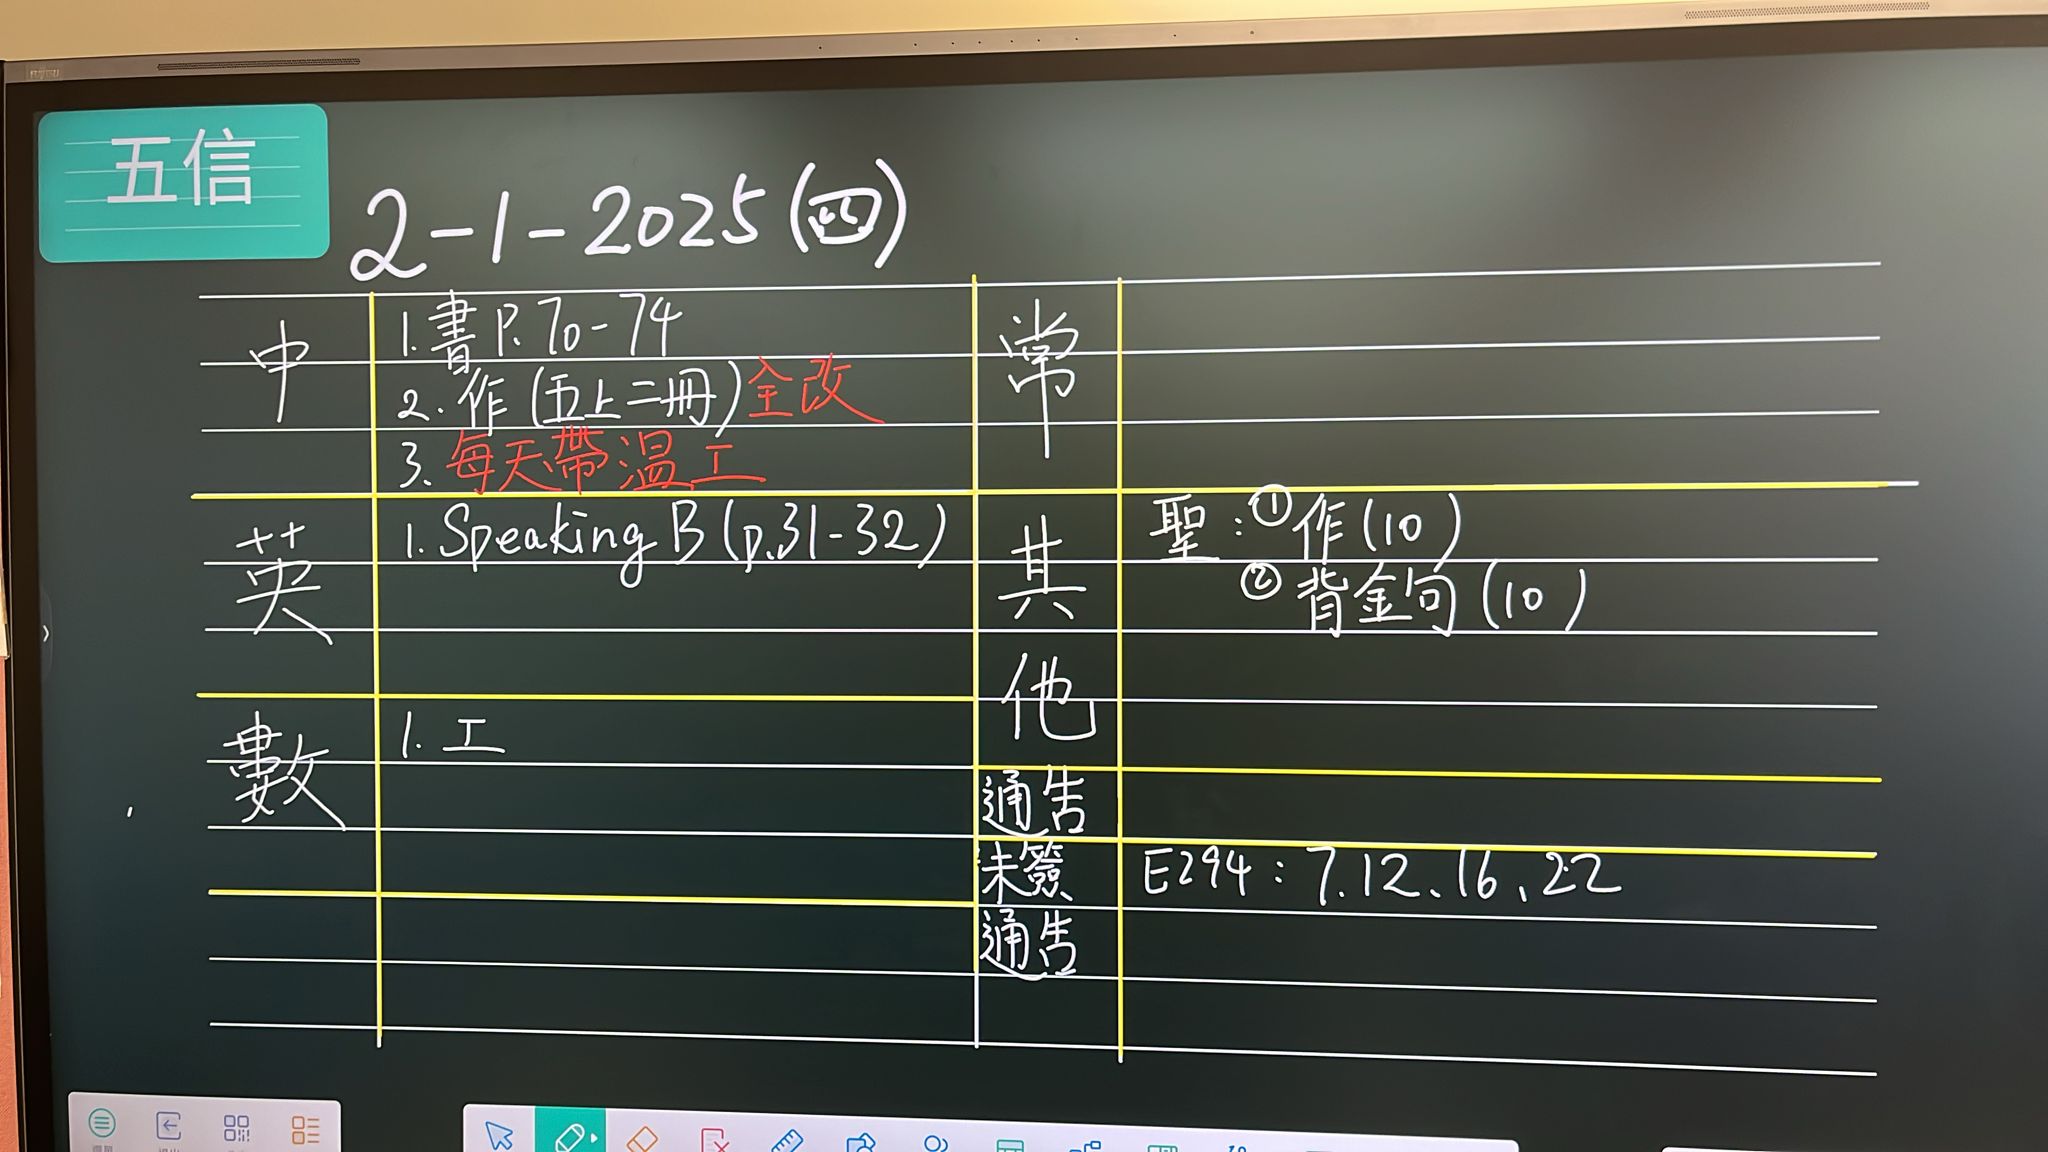 五信
2-1-2025(四)
中
1. 書 P. 70-74
2. 作 (五上二冊) 全改
3. 每天帶溫工
英
1. Speaking B (p.31-32)
數
1. 工
常
其他
聖：① 作(10)
② 背金句(10)
通告
未簽通告
E294：7、12、16、22